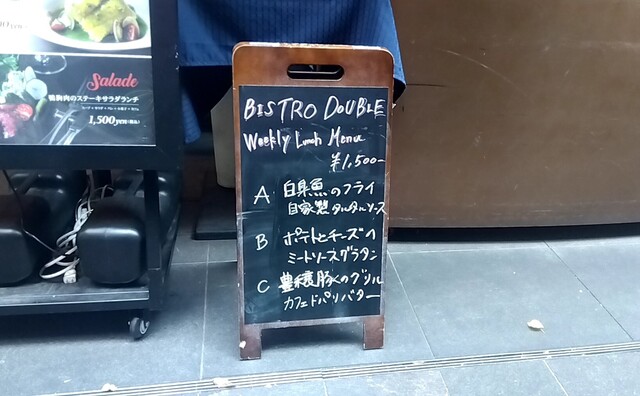 Salade
鴨胸肉のステーキサラダランチ
1,500yen
BISTRO DOUBLE
Weekly Lunch Menu
¥1,500-
A 白身魚のフライ
自家製タルタルソース
B ポテトとチーズの
ミートソースグラタン
C 豊穣豚のグリル
カフェドパリバター